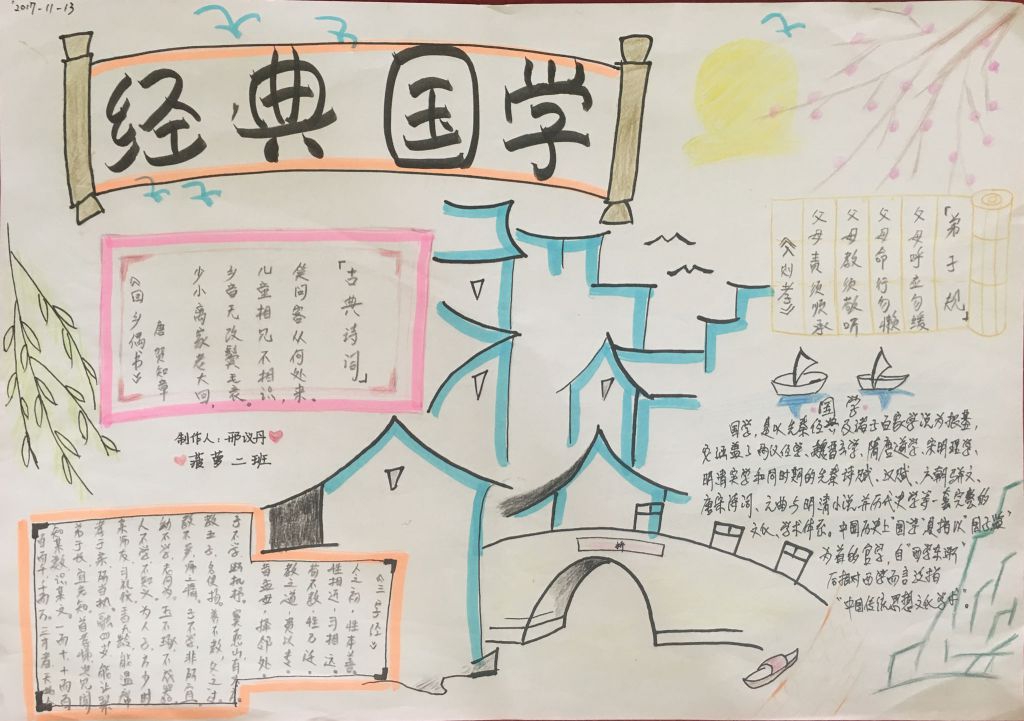 2017-11-13
经典国学
「古典诗词」
《回乡偶书》
唐 贺知章
少小离家老大回，
乡音无改鬓毛衰。
儿童相见不相识，
笑问客从何处来。
制作人：邢议丹
菠萝二班
「弟子规」
父母呼应勿缓
父母命行勿懒
父母教须敬听
父母责须顺承
《入则孝》
国学
国学，是以先秦经典及诸子百家学说为根基，
它涵盖了两汉经学、魏晋玄学、隋唐道学、宋明理学、
明清实学和同时期的先秦诗赋、汉赋、六朝骈文、
唐宋诗词、元曲与明清小说并历代史学等一套完整的
文化、学术体系。中国历史上"国学"是指以"国子监"
为首的官学，自"西学东渐"
后相对西学而言泛指
"中国传统思想文化学术"。
《三字经》
人之初，性本善。
性相近，习相远。
苟不教，性乃迁。
教之道，贵以专。
昔孟母，择邻处。
子不学，断机杼。窦燕山，有义方。
教五子，名俱扬。养不教，父之过。
教不严，师之惰。子不学，非所宜。
幼不学，老何为。玉不琢，不成器。
人不学，不知义。为人子，方少时
亲师友，习礼仪。香九龄，能温席
孝于亲，所当执。融四岁，能让梨
弟于长，宜先知。首孝悌，次见闻
知某数，识某文。一而十，十而百
百而千，千而万。三才者，天地人